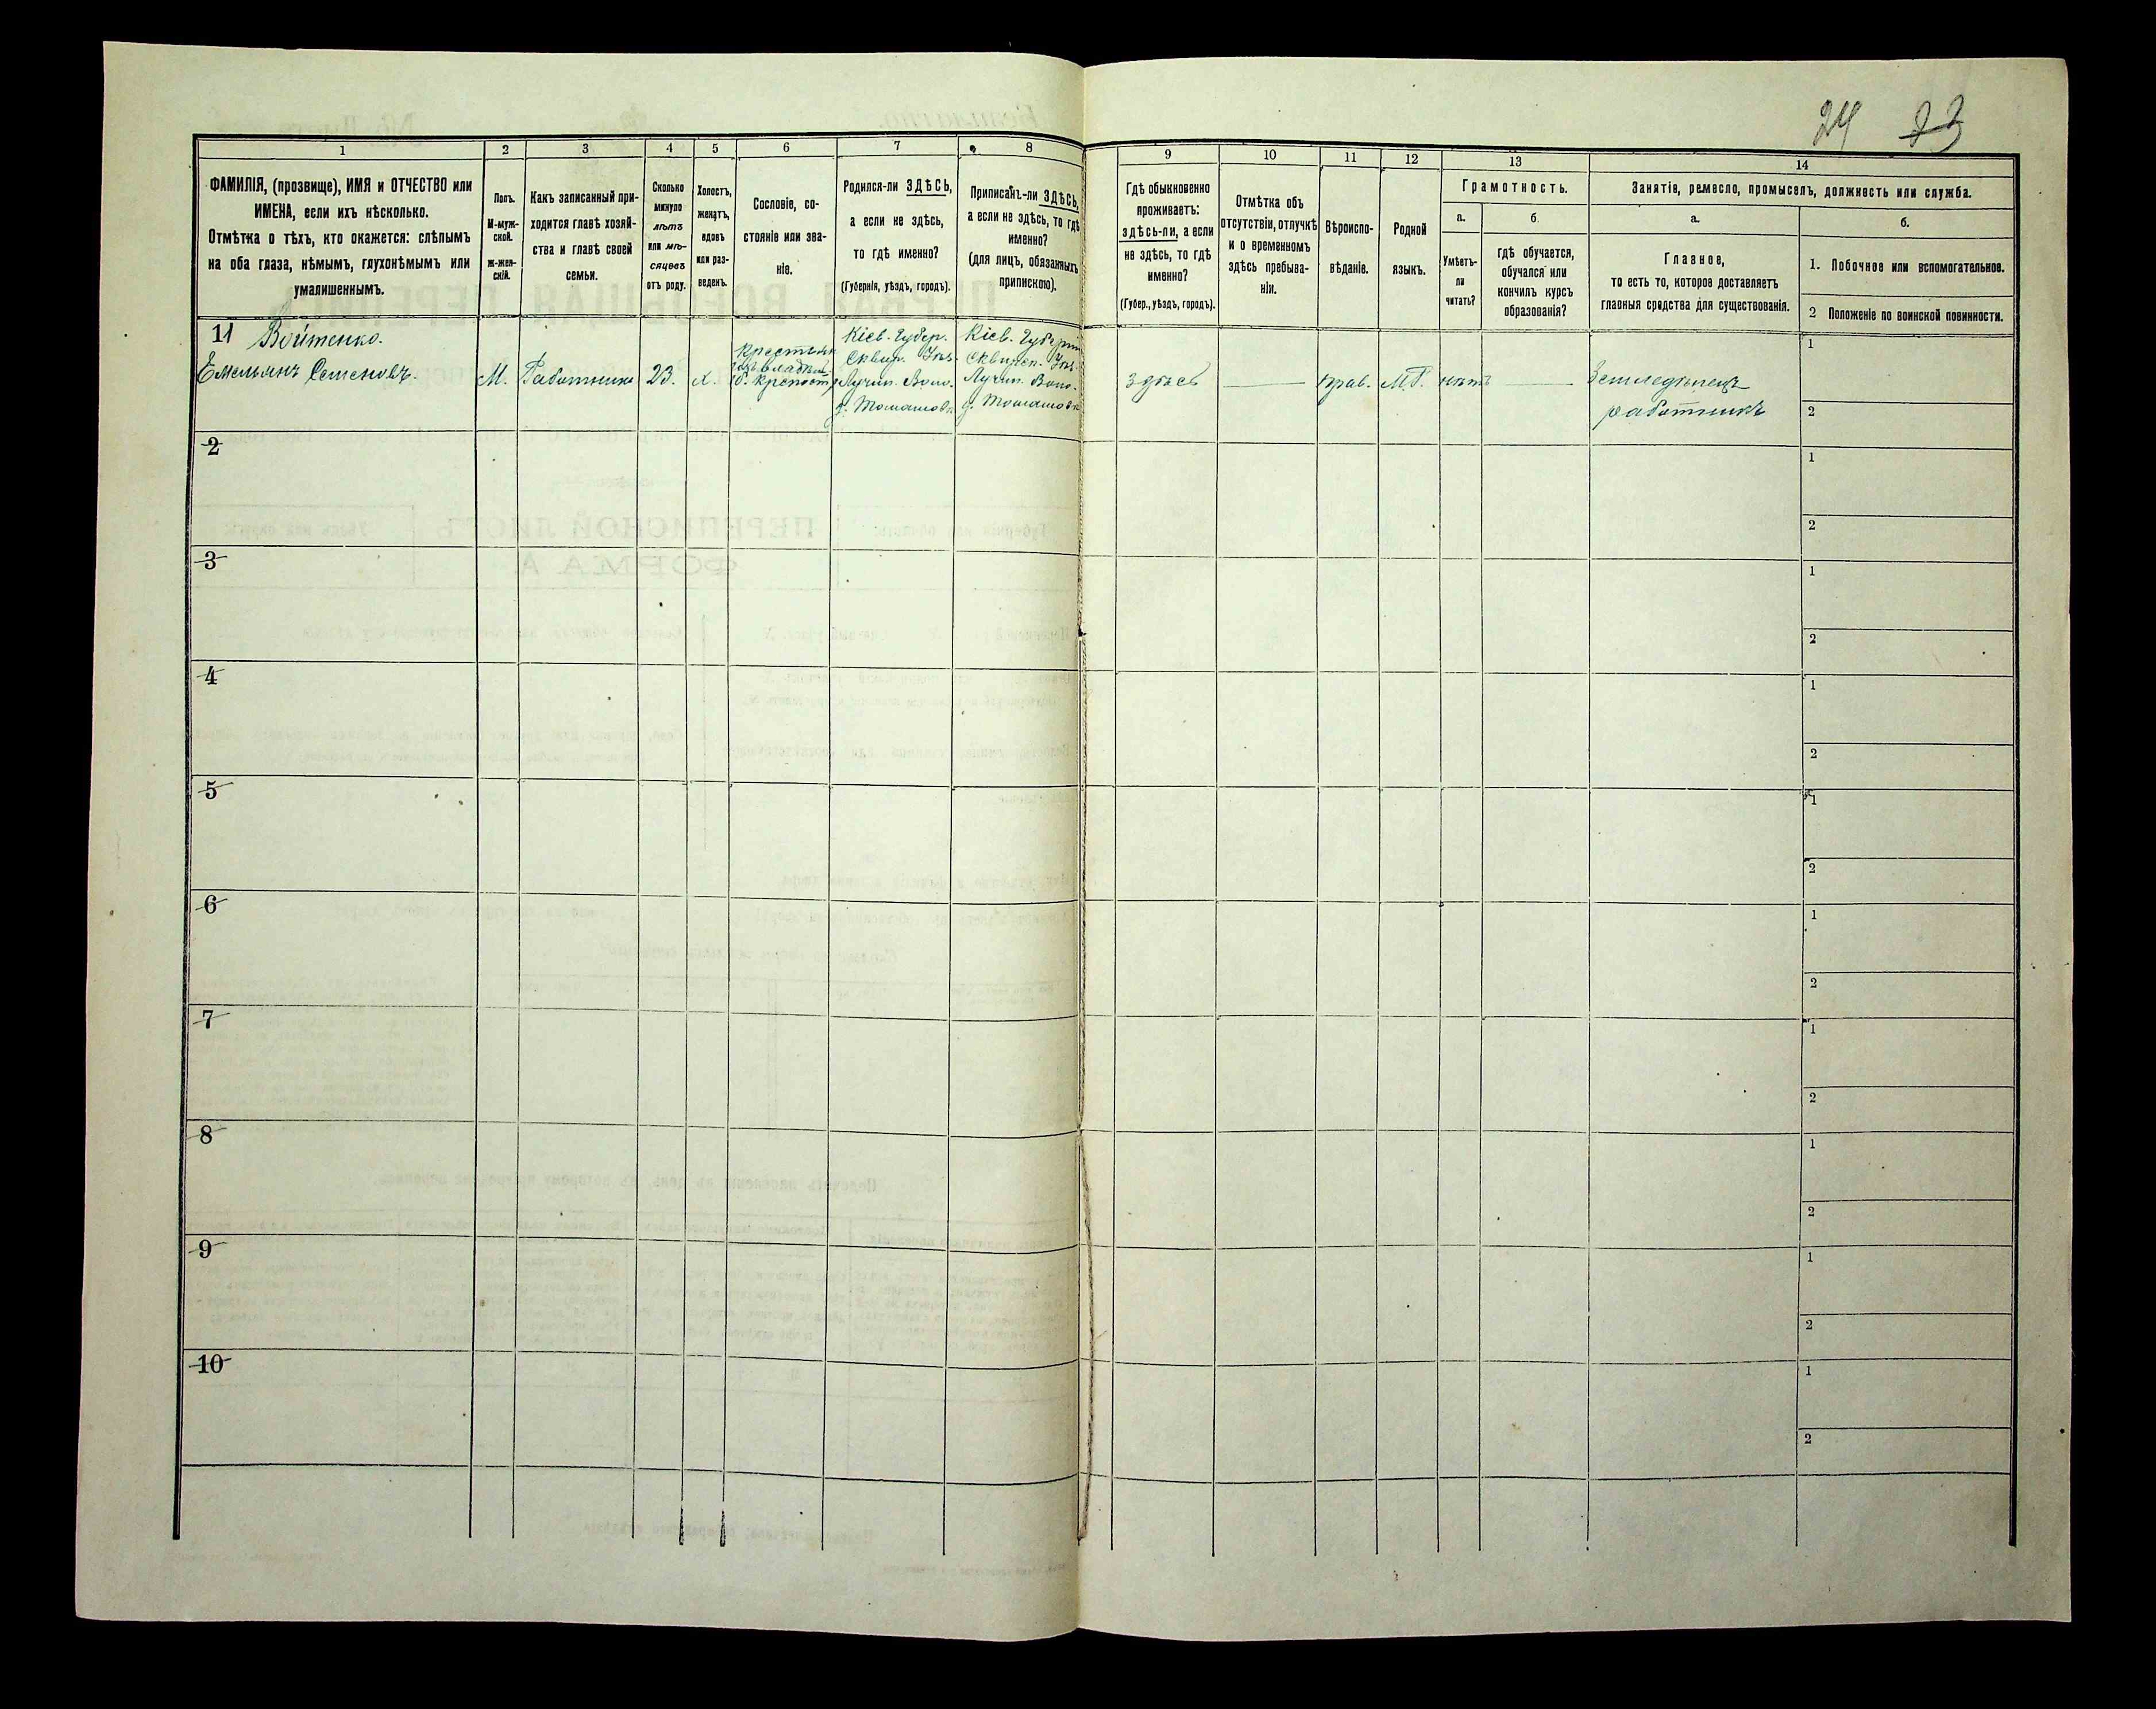 24 23
1
2
3
4
5
6
7
8
9
10
11
12
13
14
ФАМИЛІЯ, (прозвище), ИМЯ и ОТЧЕСТВО или
ИМЕНА, если ихъ нѣсколько.
Отмѣтка о тѣхъ, кто окажется: слѣпымъ
на оба глаза, нѣмымъ, глухонѣмымъ или
умалишеннымъ.
Полъ.
М-муж-
ской.
Ж-жен-
скій.
Какъ записанный при-
ходится главѣ хозяй-
ства и главѣ своей
семьи.
Сколько
минуло
лѣтъ
или мѣ-
сяцевъ
отъ роду.
Холостъ,
женатъ,
вдовъ
или раз-
веденъ.
Сословіе, со-
стояніе или зва-
ніе.
Родился-ли ЗДѢСЬ,
а если не здѣсь,
то гдѣ именно?
(Губернія, уѣздъ, городъ).
Приписанъ-ли ЗДѢСЬ,
а если не здѣсь, то гдѣ
именно?
(для лицъ, обязанныхъ
припискою).
Гдѣ обыкновенно
проживаетъ:
здѣсь-ли, а если
не здѣсь, то гдѣ
именно?
(Губер., уѣздъ, городъ).
Отмѣтка объ
отсутствіи, отлучкѣ
и о временномъ
здѣсь пребыва-
ніи.
Вѣроиспо-
вѣданіе.
Родной
языкъ.
Грамотность.
а.
Умѣетъ-
ли
читать?
б.
гдѣ обучается,
обучался или
кончилъ курсъ
образованія?
Занятіе, ремесло, промыселъ, должность или служба.
а.
Главное,
то есть то, которое доставляетъ
главныя средства для существованія.
б.
1. Побочное или вспомогательное.
2 Положеніе по воинской повинности.
11 Войтенко.
Емельянъ Семеновъ.
М.
Работникъ
23.
х.
Крестьян
изъ владѣл.
б. крепост.
Кіев. Губер.
Сквир. Уѣз.
Лучин. Воло.
д. Томашовк
Кіев. Губерн
Сквирск. Уѣз.
Лучин. Воло.
д. Томашовк
здѣсь
прав.
М.Р.
нѣтъ
Земледѣлецъ
работникъ
1
2
2
1
2
3
1
2
4
1
2
5
1
2
6
1
2
7
1
2
8
1
2
9
1
2
10
1
2